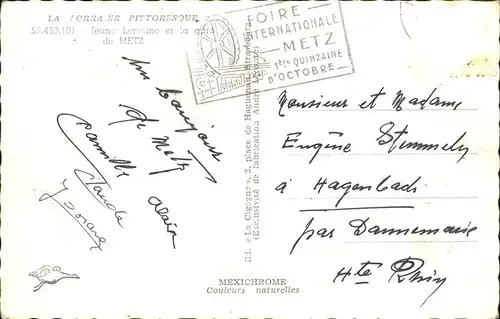 LA LORRAINE PITTORESQUE
57.463.101 Jeune Lorraine et la gare
de METZ
FOIRE
INTERNATIONALE
METZ
1ère QUINZAINE
D'OCTOBRE
Un bonjour
de Metz
Camille
Claude
Alain
Ed. «La Cigogne», 3, place de Haguenau, Strasbourg
(Exclusivité de fabrication André Leconte)
Monsieur et Madame
Eugène Stemmelen
à Hagenbach
par Dannemarie
Hte Rhin
MEXICHROME
Couleurs naturelles